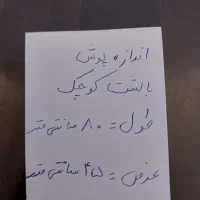 اندازه پوش
بالشت کوچک
طول = ۸۰ سانتی متر
عرض = ۴۵ سانتی متر